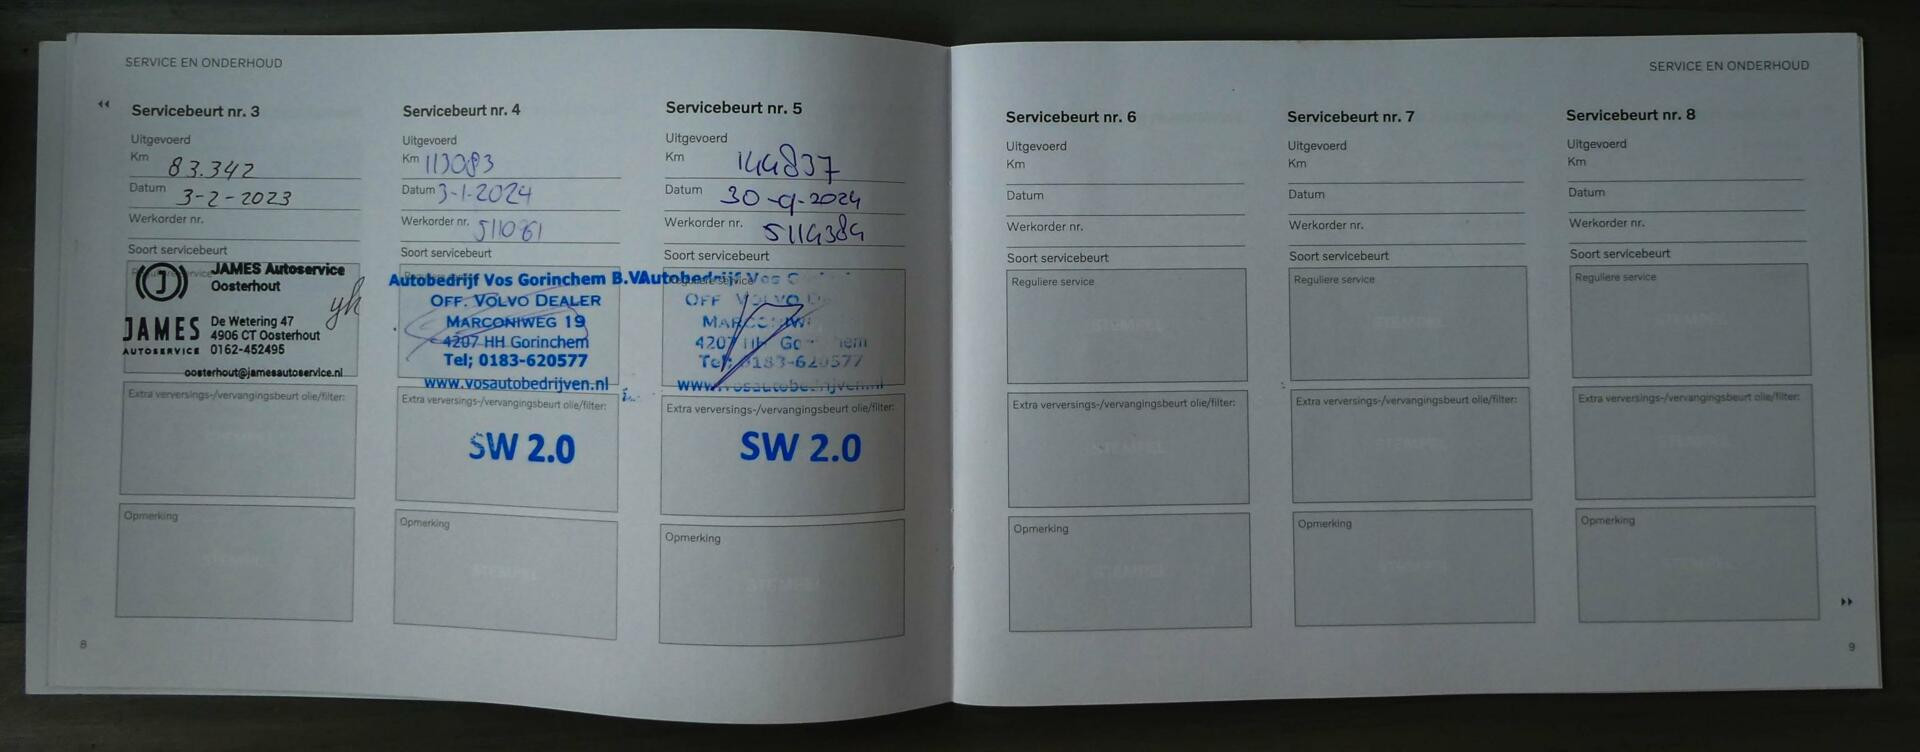 SERVICE EN ONDERHOUD
Servicebeurt nr. 3
Uitgevoerd
Km 83.342
Datum 3-2-2023
Werkorder nr.
Soort servicebeurt
JAMES Autoservice
Oosterhout
De Wetering 47
4906 CT Oosterhout
0162-452495
JAMES
AUTOSERVICE
oosterhout@jamesautoservice.nl
Extra verversings-/vervangingsbeurt olie/filter:
Opmerking
Servicebeurt nr. 4
Uitgevoerd
Km 113083
Datum 3-1-2024
Werkorder nr. 511061
Soort servicebeurt
Reguliere service
Autobedrijf Vos Gorinchem B.V
OFF. VOLVO DEALER
MARCONIWEG 19
4207 HH Gorinchem
Tel; 0183-620577
www.vosautobedrijven.nl
Extra verversings-/vervangingsbeurt olie/filter:
SW 2.0
Opmerking
STEMPEL
Servicebeurt nr. 5
Uitgevoerd
Km 144837
Datum 30-9-2024
Werkorder nr. 5114384
Soort servicebeurt
Reguliere service
Autobedrijf Vos G
OFF VOLVO D
MARCONIW
4207 HH Go nem
Tel; 0183-620577
www.vosautobedrijven.nl
Extra verversings-/vervangingsbeurt olie/filter:
SW 2.0
Opmerking
STEMPEL
8
SERVICE EN ONDERHOUD
Servicebeurt nr. 6
Uitgevoerd
Km
Datum
Werkorder nr.
Soort servicebeurt
Reguliere service
STEMPEL
Extra verversings-/vervangingsbeurt olie/filter:
STEMPEL
Opmerking
STEMPEL
Servicebeurt nr. 7
Uitgevoerd
Km
Datum
Werkorder nr.
Soort servicebeurt
Reguliere service
STEMPEL
Extra verversings-/vervangingsbeurt olie/filter:
STEMPEL
Opmerking
STEMPEL
Servicebeurt nr. 8
Uitgevoerd
Km
Datum
Werkorder nr.
Soort servicebeurt
Reguliere service
STEMPEL
Extra verversings-/vervangingsbeurt olie/filter:
STEMPEL
Opmerking
STEMPEL
9